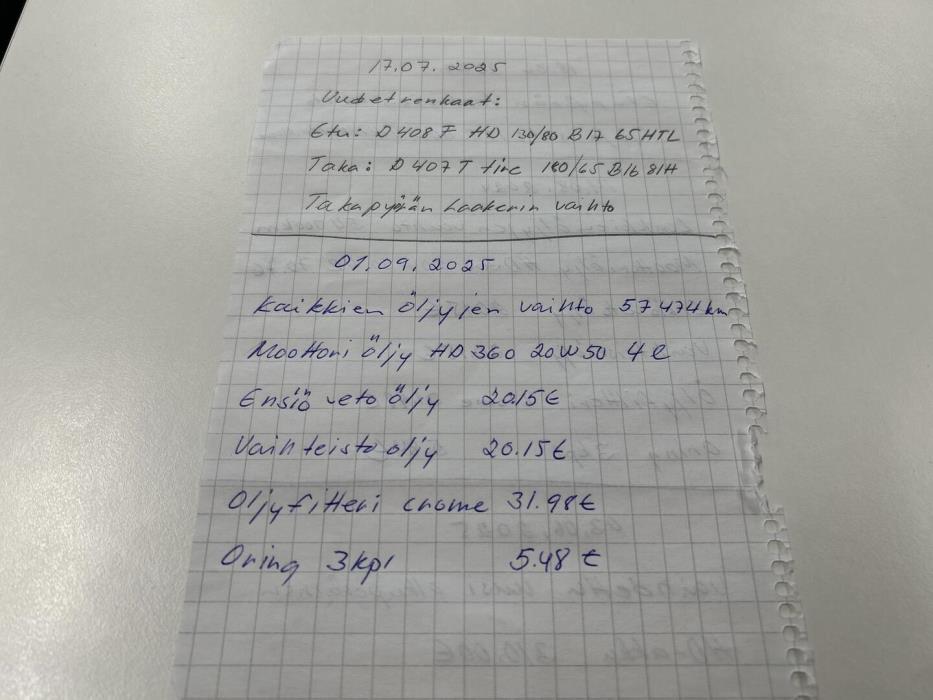 17.07.2025
Uudet renkaat:
Etu: D408F HD 130/80 B17 65HTL
Taka: D407T tinc 180/65 B16 81H
Takapyörän Laakerin vaihto
01.09.2025
Kaikkien öljyjen vaihto 57474km
Moottori öljy HD360 20W50 4l
Ensiö veto öljy 20.15€
Vaihteisto öljy 20.15€
Öljyfiltteri crome 31.98€
Oring 3kpl 5.48€